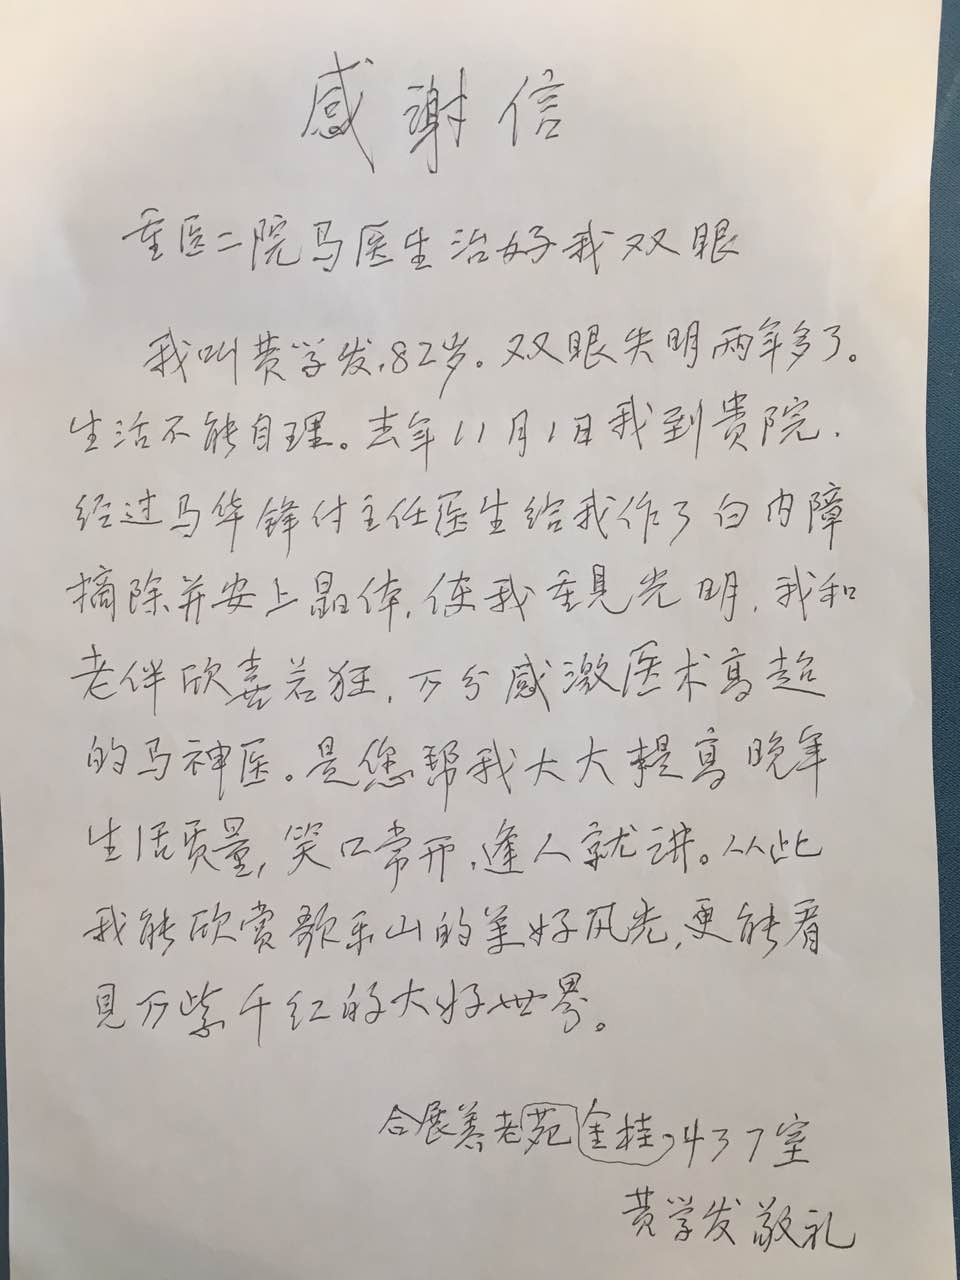 感谢信
重医二院马医生治好我双眼
我叫黄学发,82岁。双眼失明两年多了。
生活不能自理。去年11月1日我到贵院,
经过马华锋付主任医生给我作了白内障
摘除并安上晶体,使我重见光明,我和
老伴欣喜若狂,万分感激医术高超
的马神医。是您帮我大大提高晚年
生活质量,笑口常开,逢人就讲。从此
我能欣赏歌乐山的美好风光,更能看
见万紫千红的大好世界。
合展养老苑金桂,437室
黄学发敬礼